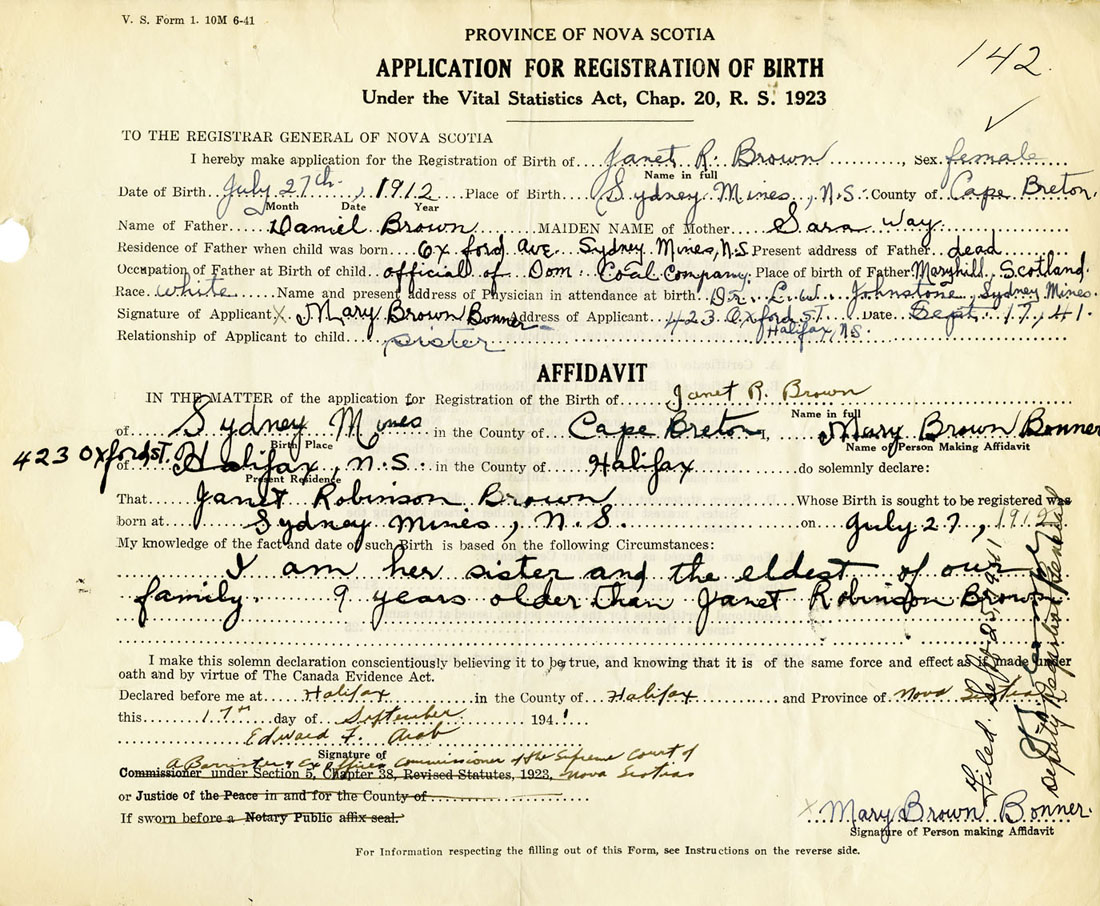 V. S. Form 1. 10M 6-41
PROVINCE OF NOVA SCOTIA
142.
APPLICATION FOR REGISTRATION OF BIRTH
Under the Vital Statistics Act, Chap. 20, R. S. 1923
TO THE REGISTRAR GENERAL OF NOVA SCOTIA
I hereby make application for the Registration of Birth of Janet R. Brown, Sex female
Name in full
Date of Birth July 27th, 1912 Place of Birth Sydney Mines, N.S. County of Cape Breton.
Month Date Year
Name of Father Daniel Brown MAIDEN NAME of Mother Sara Way.
Residence of Father when child was born Oxford Ave. Sydney Mines, N.S. Present address of Father dead
Occupation of Father at Birth of child official of Dom. Coal Company. Place of birth of Father Maryhill, Scotland.
Race white Name and present address of Physician in attendance at birth Dr. L. W. Johnstone, Sydney Mines.
Signature of Applicant X Mary Brown Bonner Address of Applicant 423 Oxford St. Date Sept. 17, 41.
Halifax, N.S.
Relationship of Applicant to child sister
AFFIDAVIT
IN THE MATTER of the application for Registration of the Birth of Janet R. Brown
Name in full
of Sydney Mines in the County of Cape Breton I, Mary Brown Bonner
Birth Place Name of Person Making Affidavit
423 Oxford St.
of Halifax, N.S. in the County of Halifax do solemnly declare:
Present Residence
That Janet Robinson Brown Whose Birth is sought to be registered was
born at Sydney Mines, N.S. on July 27, 1912
My knowledge of the fact and date of such Birth is based on the following Circumstances:
I am her sister and the eldest of our
family. 9 years older than Janet Robinson Brown
I make this solemn declaration conscientiously believing it to be true, and knowing that it is of the same force and effect as if made under
oath and by virtue of The Canada Evidence Act.
Declared before me at Halifax in the County of Halifax and Province of Nova Scotia
this 17th day of September 1941
Edward F. Arab
Signature of
A Barrister & Ex officio Commissioner of the Supreme Court of
Commissioner under Section 5, Chapter 38, Revised Statutes, 1923, Nova Scotia
or Justice of the Peace in and for the County of
If sworn before a Notary Public affix seal.
X Mary Brown Bonner.
Signature of Person making Affidavit
For Information respecting the filling out of this Form, see Instructions on the reverse side.
Filed. Sept 25, 1941
Deputy Registrar General